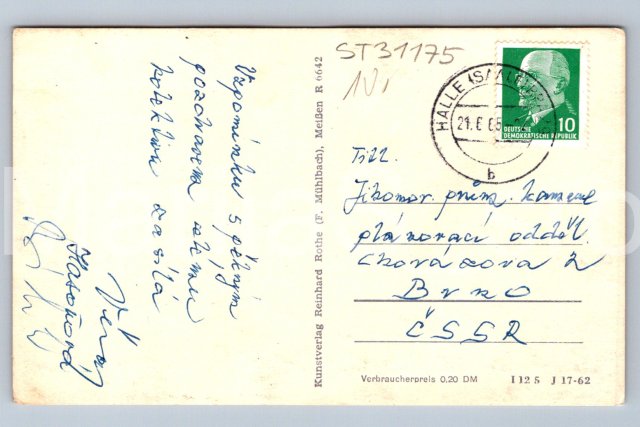 Vzpomínku s pěkným
pozdravem všemu
kolektivu zasílá
Věra
Kunstverlag Reinhard Rothe (F. Mühlbach), Meißen R 6642
ST31175
HALLE (SAALE)
21. 6. 65
b
DEUTSCHE
DEMOKRATISCHE REPUBLIK
10
Tit.
Jihomor. prům. kamene
plánovací odděl.
Chorázova 2
Brno
ČSSR
Verbraucherpreis 0,20 DM
I 12 5 J 17-62